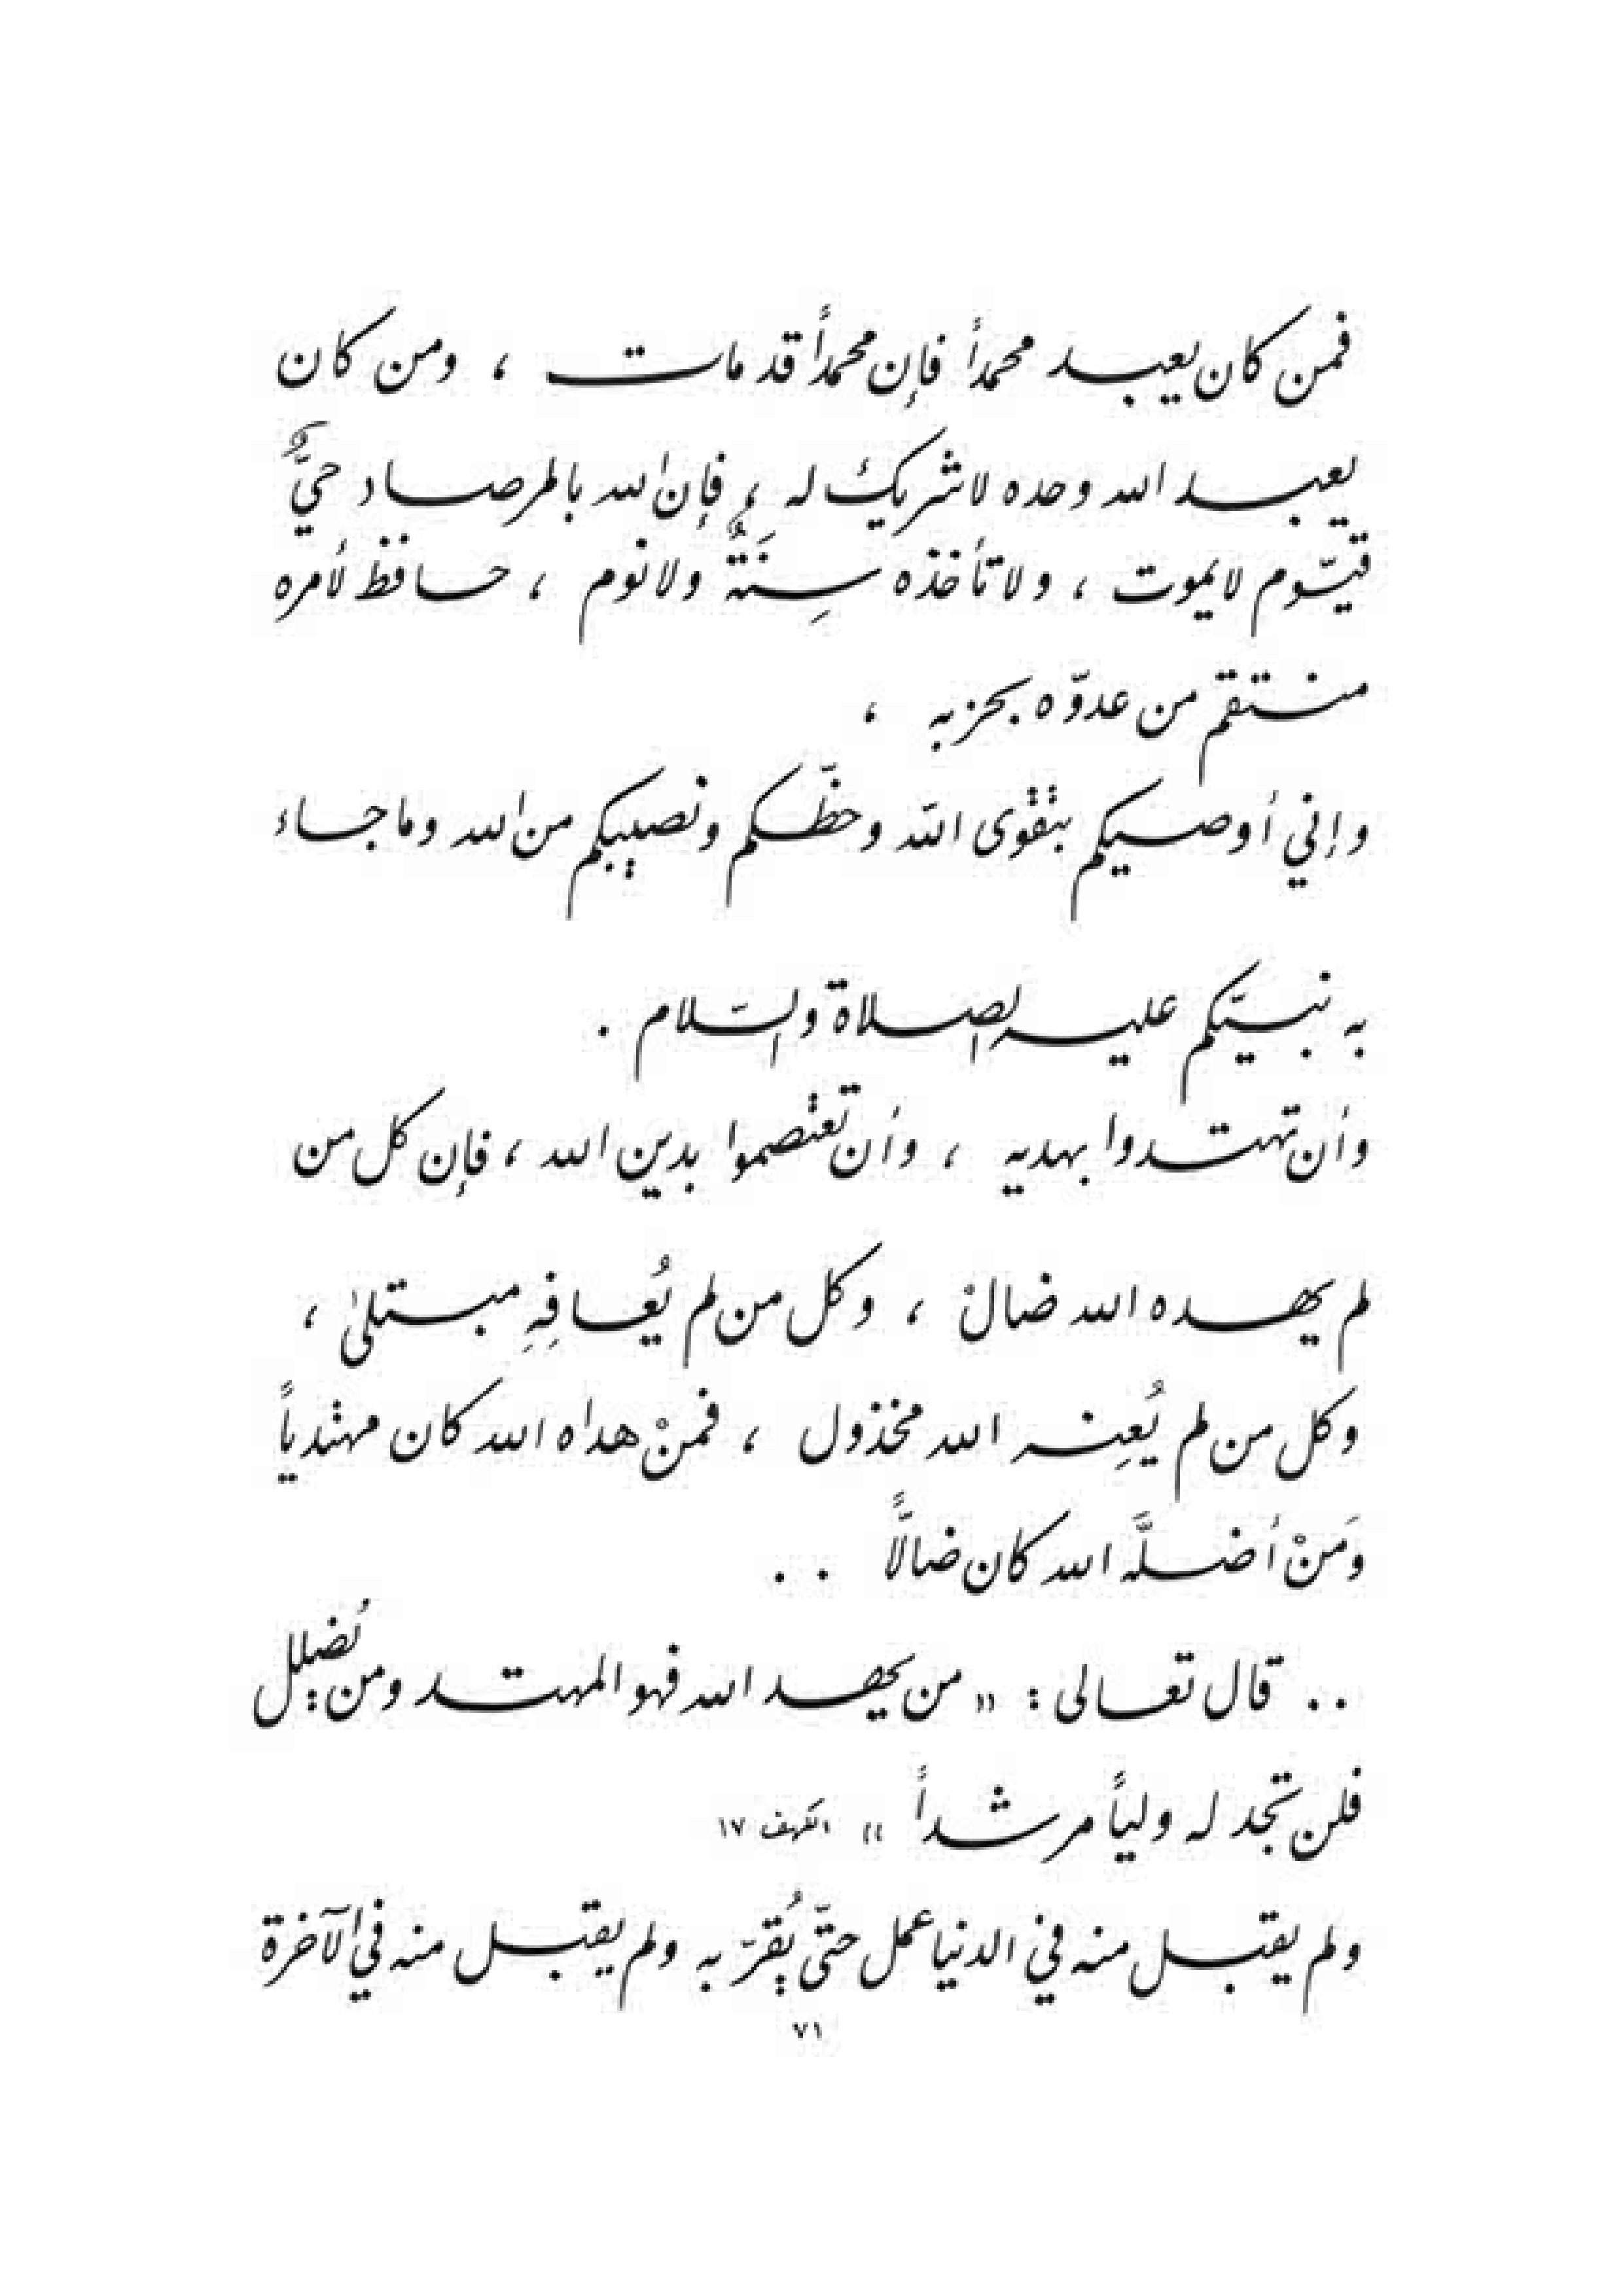 فمن كان يعبد محمداً فإن محمداً قد مات ، ومن كان
يعبد الله وحده لا شريك له ، فإن الله بالمرصاد حيٌّ
قيّوم لا يموت ، ولا تأخذه سِنَةٌ ولا نوم ، حافظ لأمره
منتقم من عدوّه بحزبه ،
وإني أوصيكم بتقوى الله وحظّكم ونصيبكم من الله وما جاء
به نبيّكم عليه الصلاة والسّلام .
وأن تهتدوا بهديه ، وأن تعتصموا بدين الله ، فإن كل من
لم يهده الله ضالٌ ، وكل من لم يُعافِهِ مبتلىٰ ،
وكل من لم يُعِنه الله مخذول ، فمنْ هداه الله كان مهتدياً
ومَنْ أضلَّه الله كان ضالاًّ . .
. . قال تعالى : « من يهد الله فهو المهتد ومن يُضلل
فلن تجد له ولياً مرشداً » الكهف ١٧
ولم يقبل منه في الدنيا عمل حتّى يُقرّ به ولم يقبل منه في الآخرة
٧١